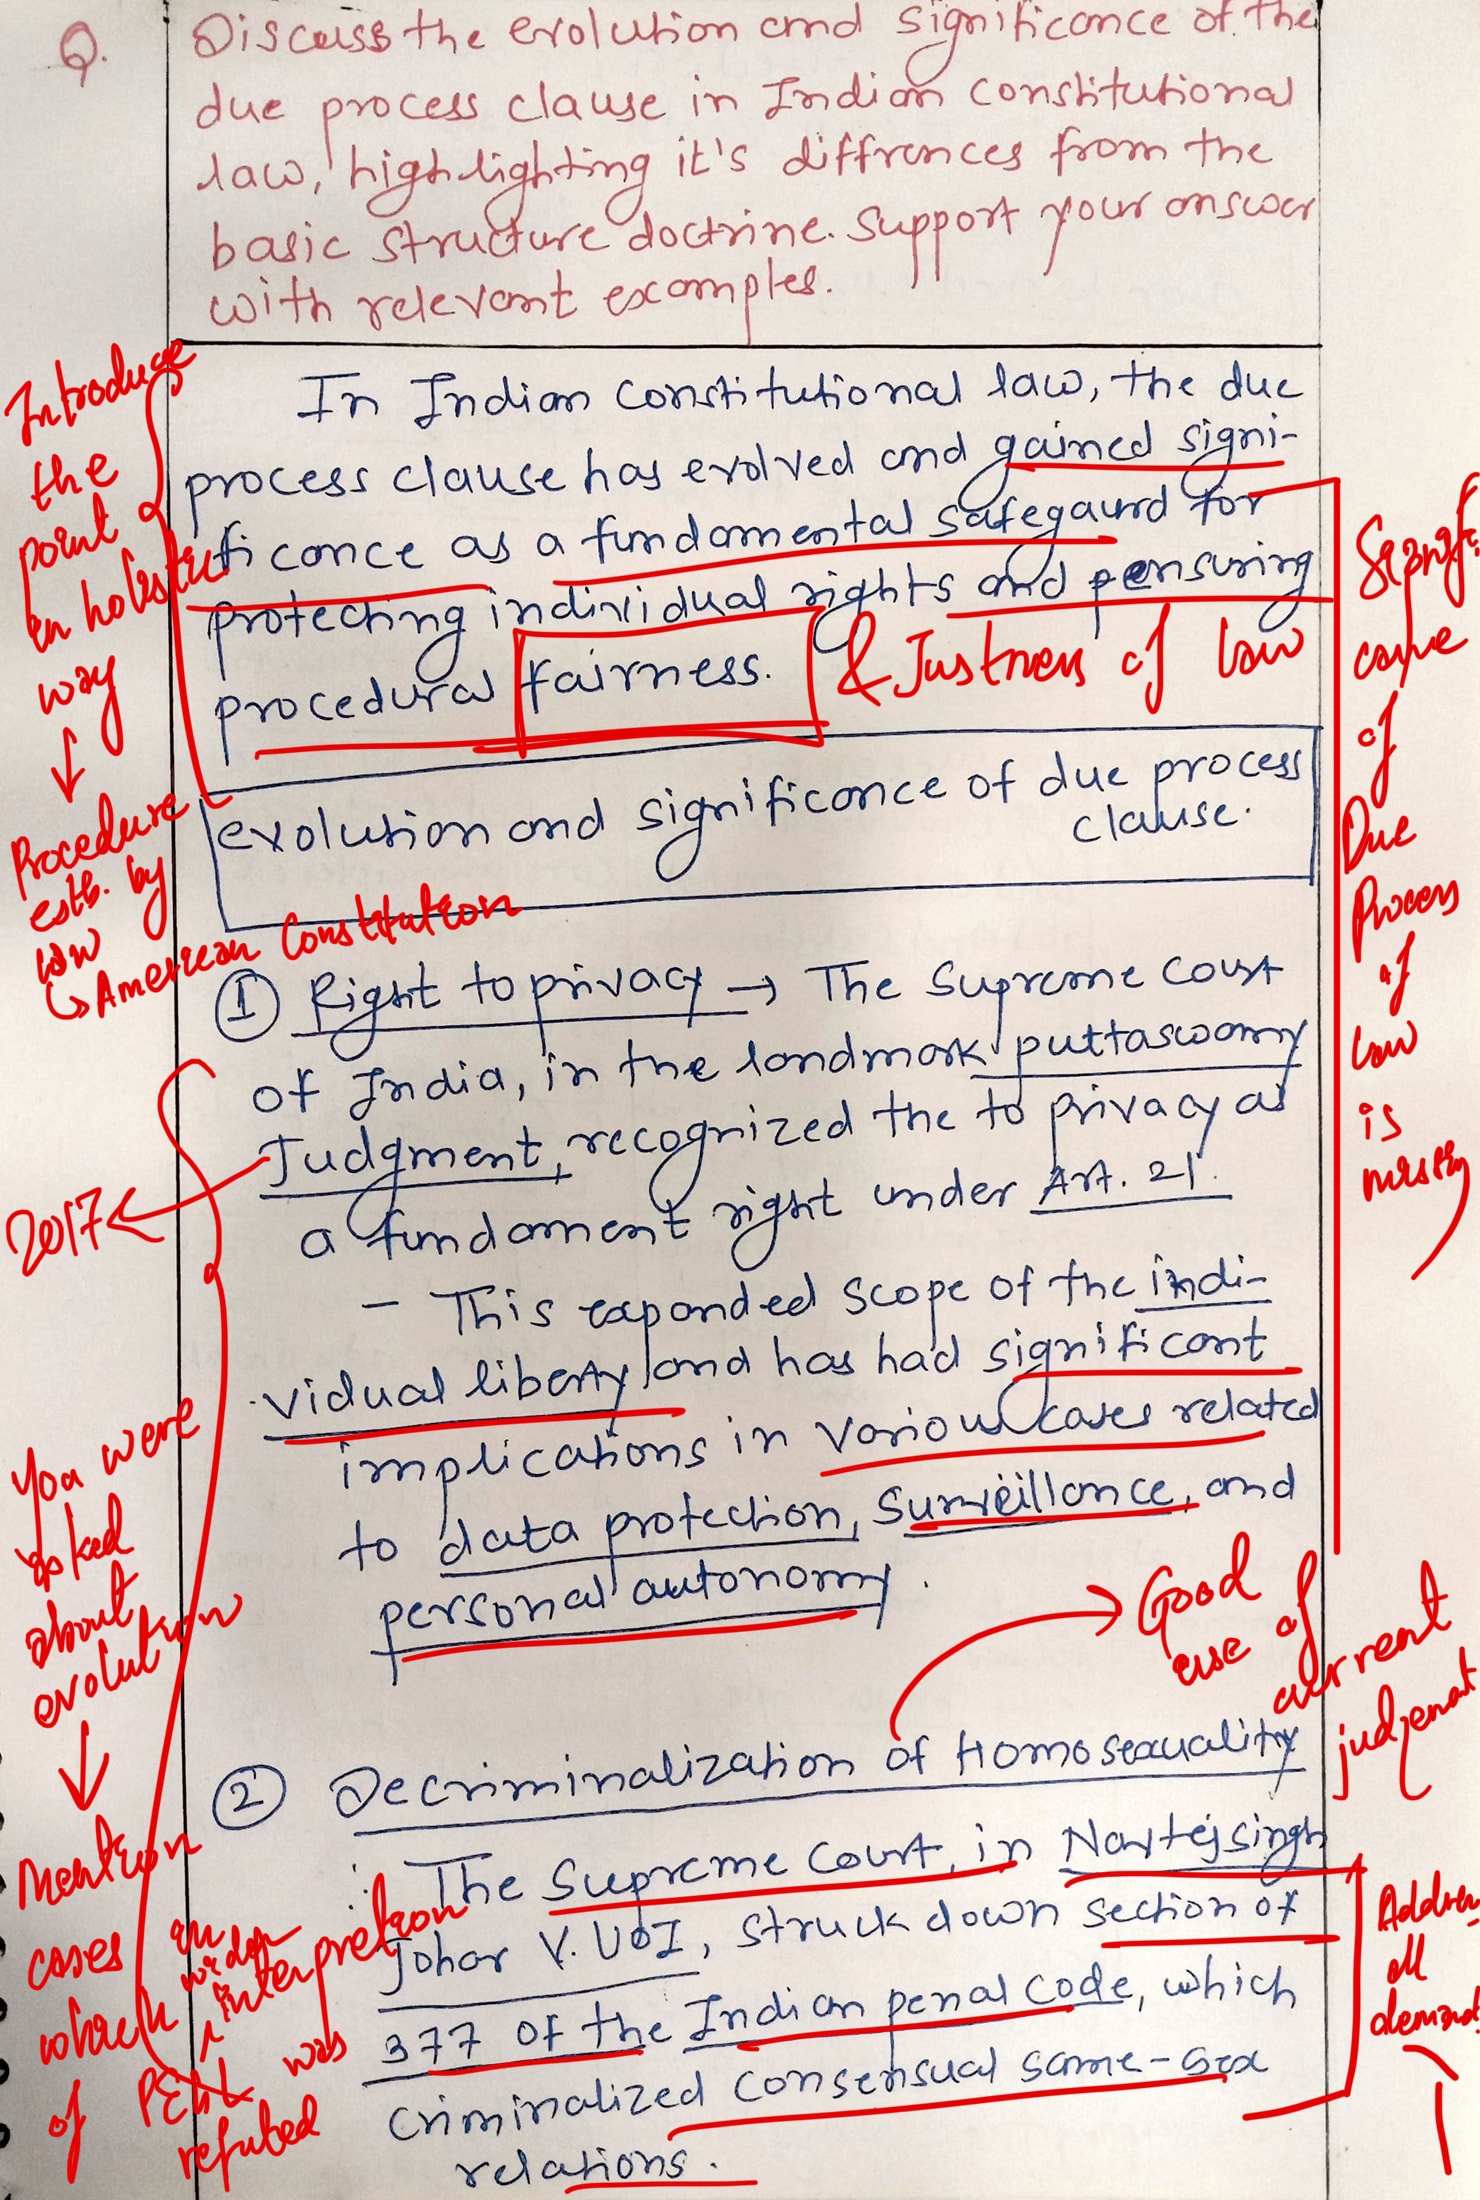 Q.
Discuss the evolution and significance of the
due process clause in Indian constitutional
law, highlighting it's diffrences from the
basic structure doctrine. Support your answer
with relevant examples.
Introduce
the
point
in holistic
way
↓
Procedure
estb. by
law
↳ American Constitution
In Indian constitutional law, the due
process clause has evolved and gained signi-
ficance as a fundamental safegaurd for
protecting individual rights and ensuring
procedural fairness.
& Justness of law
evolution and significance of due process
clause.
① Right to privacy → The Supreme Court
of India, in the landmark puttaswamy
Judgment, recognized the to privacy as
a fundament right under Art. 21.
- This expanded scope of the indi-
vidual liberty and has had significant
implications in various cases related
to data protection, Surveillance, and
personal autonomy.
2017
Signifi
cance
of
Due
Process
of
law
is
missing
You were
asked
about
evolution
↓
Mention
cases
which
of PEBL was
refuted
in wider
interpretation
Good
use of
current
judgement
② Decriminalization of Homosexuality
: The Supreme Court, in Navtej singh
Johar V. UOI, struck down section of
377 of the Indian penal code, which
criminalized consensual same-sex
relations.
Address
all
demand